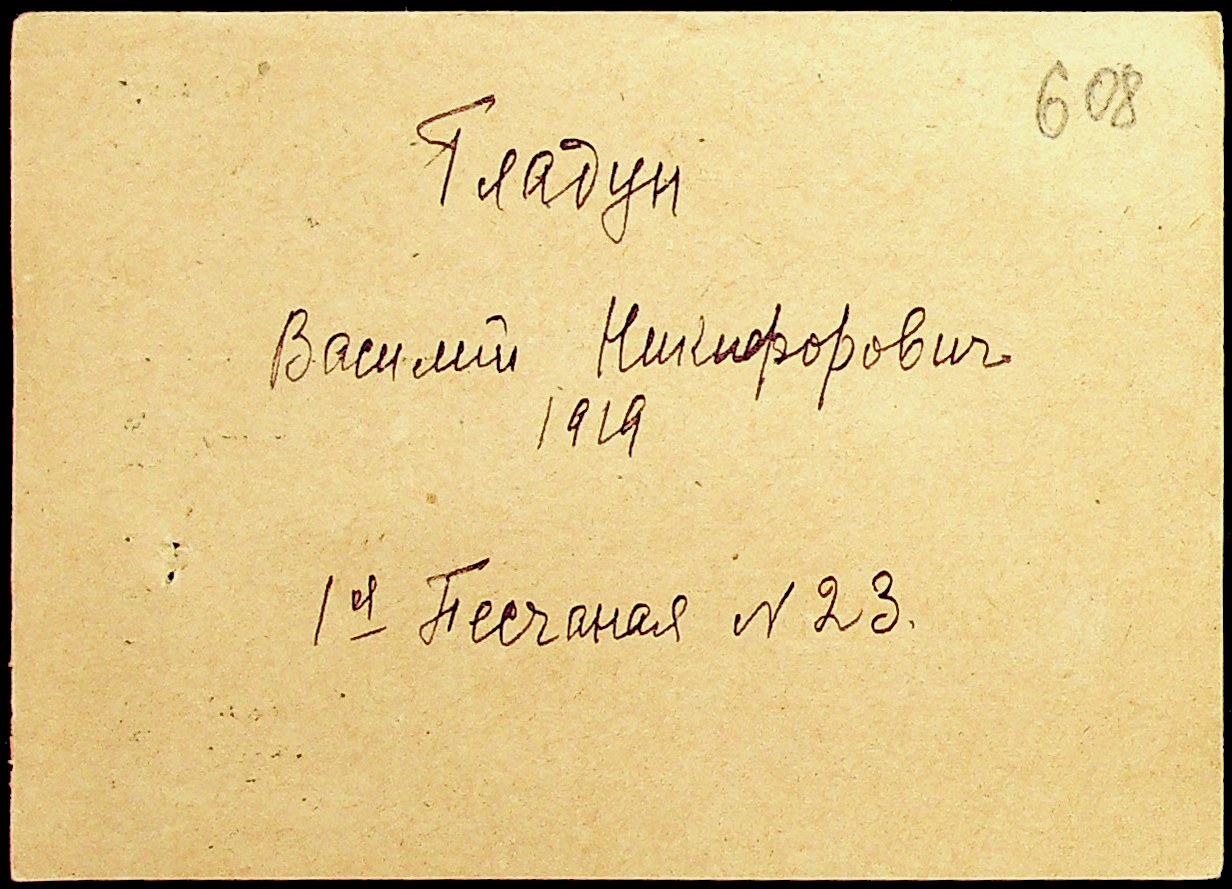 608
Гладун
Василий Никифорович
1919
1я Песчаная N 23.